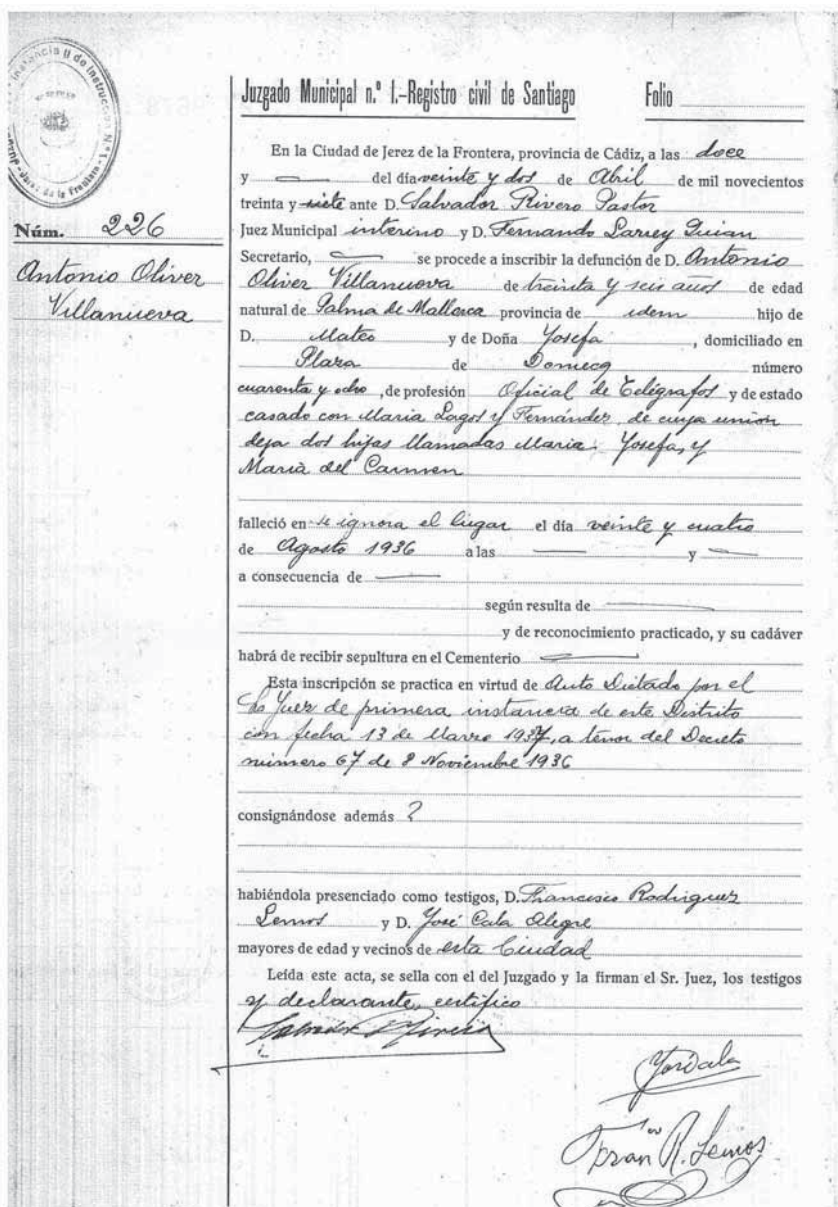 Instancia II de Instrucción N.º 1
Jerez de la Frontera
Juzgado Municipal n.º 1.-Registro civil de Santiago Folio
En la Ciudad de Jerez de la Frontera, provincia de Cádiz, a las doce
y — del día veinte y dos de Abril de mil novecientos
treinta y siete ante D. Salvador Rivero Pastor
Núm. 226
Juez Municipal interino y D. Fernando Larrey
Secretario, — se procede a inscribir la defunción de D. Antonio
Antonio Oliver
Villanueva
Oliver Villanueva de treinta y seis años de edad
natural de Palma de Mallorca provincia de idem hijo de
D. Mateo y de Doña Josefa, domiciliado en
Plaza de Domecq número
cuarenta y ocho, de profesión Oficial de Telégrafos y de estado
casado con Maria Lagos y Fernández, de cuya union
deja dos hijas llamadas Maria Josefa, y
Maria del Carmen
falleció en se ignora el lugar el día veinte y cuatro
de Agosto 1936 a las — y —
a consecuencia de —
según resulta de —
y de reconocimiento practicado, y su cadáver
habrá de recibir sepultura en el Cementerio —
Esta inscripción se practica en virtud de Auto Dictado por el
Juez de primera instancia de este Distrito
con fecha 13 de Marzo 1937, a tenor del Decreto
número 67 de 8 Noviembre 1936
consignándose además ?
habiéndola presenciado como testigos, D. Francisco Rodriguez
Lemos y D. José Cala Alegre
mayores de edad y vecinos de esta Ciudad
Leída este acta, se sella con el del Juzgado y la firman el Sr. Juez, los testigos
y declarante, certifico
Salvador Rivero
Fran R. Lemos